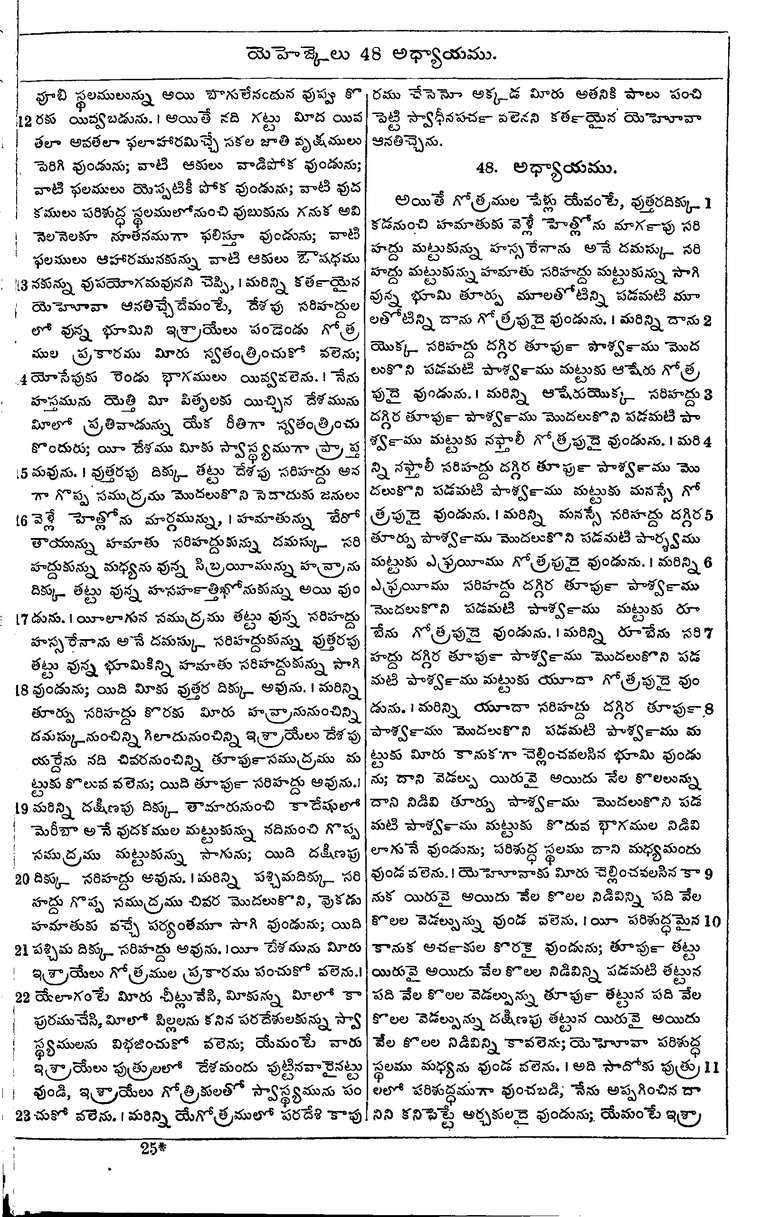 యెహెజ్కేలు 48 అధ్యాయము.
వూబి స్థలములున్ను అయి బాగులేనందున వుప్పు కొ
12 రకు యివ్వబడును. । అయితే నది గట్టు మీద యివ
తలా అవతలా ఫలాహారమిచ్చే సకల జాతి వృక్షములు
పెరిగి వుండును; వాటి ఆకులు వాడిపోక వుండును;
వాటి ఫలములు యెప్పటికీ పోక వుండును; వాటి వుద
కములు పరిశుద్ధ స్థలములోనుంచి వుబుకును గనుక అవి
నెలనెలకూ నూతనముగా ఫలిస్తూ వుండును; వాటి
ఫలములు ఆహారమునకున్ను వాటి ఆకులు ఔషధము
13 నకున్ను వుపయోగమవునని చెప్పి, । మరిన్ని కర్తయైన
యెహోవా ఆనతిచ్చేదేమంటే, దేశపు సరిహద్దుల
లో వున్న భూమిని ఇశ్రాయేలు పండెండు గోత్ర
ముల ప్రకారము మీరు స్వతంత్రించుకో వలెను;
4 యోసేపుకు రెండు భాగములు యివ్వవలెను. । నేను
హస్తమును యెత్తి మీ పితృలకు యిచ్చిన దేశమును
మీలో ప్రతివాడున్ను యేక రీతిగా స్వతంత్రించు
కొందురు; యీ దేశము మీకు స్వాస్థ్యముగా ప్రాప్త
15 మవును. । వుత్తరపు దిక్కు తట్టు దేశపు సరిహద్దు అన
గా గొప్ప సముద్రము మొదలుకొని సెదాదుకు జనులు
16 వెళ్లే హెత్లోను మార్గమున్ను, । హమాతున్ను బేరో
తాయున్ను హమాతు సరిహద్దుకున్ను దమస్కు సరి
హద్దుకున్ను మధ్యను వున్న సిబ్రయీమున్ను హవ్రాను
దిక్కు తట్టు వున్న హసహకాత్తిఖోనుకున్ను అయి వుం
17 డును. । యీలాగున సముద్రము తట్టు వున్న సరిహద్దు
హస్సరేనాను అనే దమస్కు సరిహద్దుకున్ను వుత్తరపు
తట్టు వున్న భూమికిన్ని హమాతు సరిహద్దుకున్ను సాగి
18 వుండును; యిది మీకు వుత్తర దిక్కు అవును. । మరిన్ని
తూర్పు సరిహద్దు కొరకు మీరు హవ్రానునుంచిన్ని
దమస్కునుంచిన్ని గిలాదునుంచిన్ని ఇశ్రాయేలు దేశపు
యర్దేను నది చివరనుంచిన్ని తూర్పుసముద్రము మ
ట్టుకు కొలువ వలెను; యిది తూర్పు సరిహద్దు అవును.।
19 మరిన్ని దక్షిణపు దిక్కు తామారునుంచి కాదేషులో
మెరీబా అనే వుదకముల మట్టుకున్ను నదినుంచి గొప్ప
సముద్రము మట్టుకున్ను సాగును; యిది దక్షిణపు
20 దిక్కు సరిహద్దు అవును. । మరిన్ని పశ్చిమదిక్కు సరి
హద్దు గొప్ప సముద్రము చివర మొదలుకొని, ఫుకడు
హమాతుకు వచ్చే పర్యంతమూ సాగి వుండును; యిది
21 పశ్చిమ దిక్కు సరిహద్దు అవును. ।యీ దేశమును మీరు
ఇశ్రాయేలు గోత్రముల ప్రకారము పంచుకో వలెను.।
22 యేలాగంటే మీరు చీట్లువేసి, మీకున్ను మీలో కా
పురముచేసి, మీలో పిల్లలను కనిన పరదేశులకున్ను స్వా
స్థ్యములను విభజించుకో వలెను; యేమంటే వారు
ఇశ్రాయేలు పుత్రులలో దేశమందు పుట్టినవారైనట్టు
వుండి, ఇశ్రాయేలు గోత్రికులతో స్వాస్థ్యమును పం
23 చుకో వలెను. । మరిన్ని యేగోత్రములో పరదేశి కాపు
రము చేసెనో అక్కడ మీరు అతనికి పాలు పంచి
పెట్టి స్వాధీనపర్చ వలెనని కర్తయైన యెహోవా
ఆనతిచ్చెను.
48. అధ్యాయము.
అయితే గోత్రముల పేళ్లు యేవంటే, వుత్తరదిక్కు 1
కడనుంచి హమాతుకు వెళ్లే హెత్లోను మార్గపు సరి
హద్దు మట్టుకున్ను హస్సరేనాను అనే దమస్కు సరి
హద్దు మట్టుకున్ను హమాతు సరిహద్దు మట్టుకున్ను సాగి
వున్న భూమి తూర్పు మూలతోటిన్ని పడమటి మూ
లతోటిన్ని దాను గోత్రపుదై వుండును. । మరిన్ని దాను 2
యొక్క సరిహద్దు దగ్గిర తూర్పు పార్శ్వము మొద
లుకొని పడమటి పార్శ్వము మట్టుకు ఆషేరు గోత్ర
పుదై వుండును. । మరిన్ని ఆషేరుయొక్క సరిహద్దు 3
దగ్గిర తూర్పు పార్శ్వము మొదలుకొని పడమటి పా
ర్శ్వము మట్టుకు నఫ్తాలీ గోత్రపుదై వుండును. । మరి 4
న్ని నఫ్తాలీ సరిహద్దు దగ్గిర తూర్పు పార్శ్వము మొ
దలుకొని పడమటి పార్శ్వము మట్టుకు మనస్సే గో
త్రపుదై వుండును. । మరిన్ని మనస్సే సరిహద్దు దగ్గిర 5
తూర్పు పార్శ్వము మొదలుకొని పడమటి పార్శ్వము
మట్టుకు ఎఫ్రయీము గోత్రపుదై వుండును. । మరిన్ని 6
ఎఫ్రయీము సరిహద్దు దగ్గిర తూర్పు పార్శ్వము
మొదలుకొని పడమటి పార్శ్వము మట్టుకు రూ
బేను గోత్రపుదై వుండును. । మరిన్ని రూబేను సరి 7
హద్దు దగ్గిర తూర్పు పార్శ్వము మొదలుకొని పడ
మటి పార్శ్వము మట్టుకు యూదా గోత్రపుదై వుం
డును. । మరిన్ని యూదా సరిహద్దు దగ్గిర తూర్పు 8
పార్శ్వము మొదలుకొని పడమటి పార్శ్వము మ
ట్టుకు మీరు కానుకగా చెల్లించవలసిన భూమి వుండు
ను; దాని వెడల్పు యిరువై అయిదు వేల కొలలున్ను
దాని నిడివి తూర్పు పార్శ్వము మొదలుకొని పడ
మటి పార్శ్వము మట్టుకు కొదువ భాగముల నిడివి
లాగునే వుండును; పరిశుద్ధ స్థలము దాని మధ్యమందు
వుండ వలెను. । యెహోవాకు మీరు చెల్లించవలసిన కా 9
నుక యిరువై అయిదు వేల కొలల నిడివిన్ని పది వేల
కొలల వెడల్పున్ను వుండ వలెను. । యీ పరిశుద్ధమైన 10
కానుక అర్చకుల కొరకై వుండును; తూర్పు తట్టు
యిరువై అయిదు వేల కొలల నిడివిన్ని పడమటి తట్టున
పది వేల కొలల వెడల్పున్ను తూర్పు తట్టున పది వేల
కొలల వెడల్పున్ను దక్షిణపు తట్టున యిరువై అయిదు
వేల కొలల నిడివిన్ని కావలెను; యెహోవా పరిశుద్ధ
స్థలము మధ్యను వుండ వలెను. । అది సాదోకు పుత్రు 11
లలో పరిశుద్ధముగా వుంచబడి, నేను అప్పగించిన దా
నిని కనిపెట్టే అర్చకులదై వుండును; యేమంటే ఇశ్రా
25*